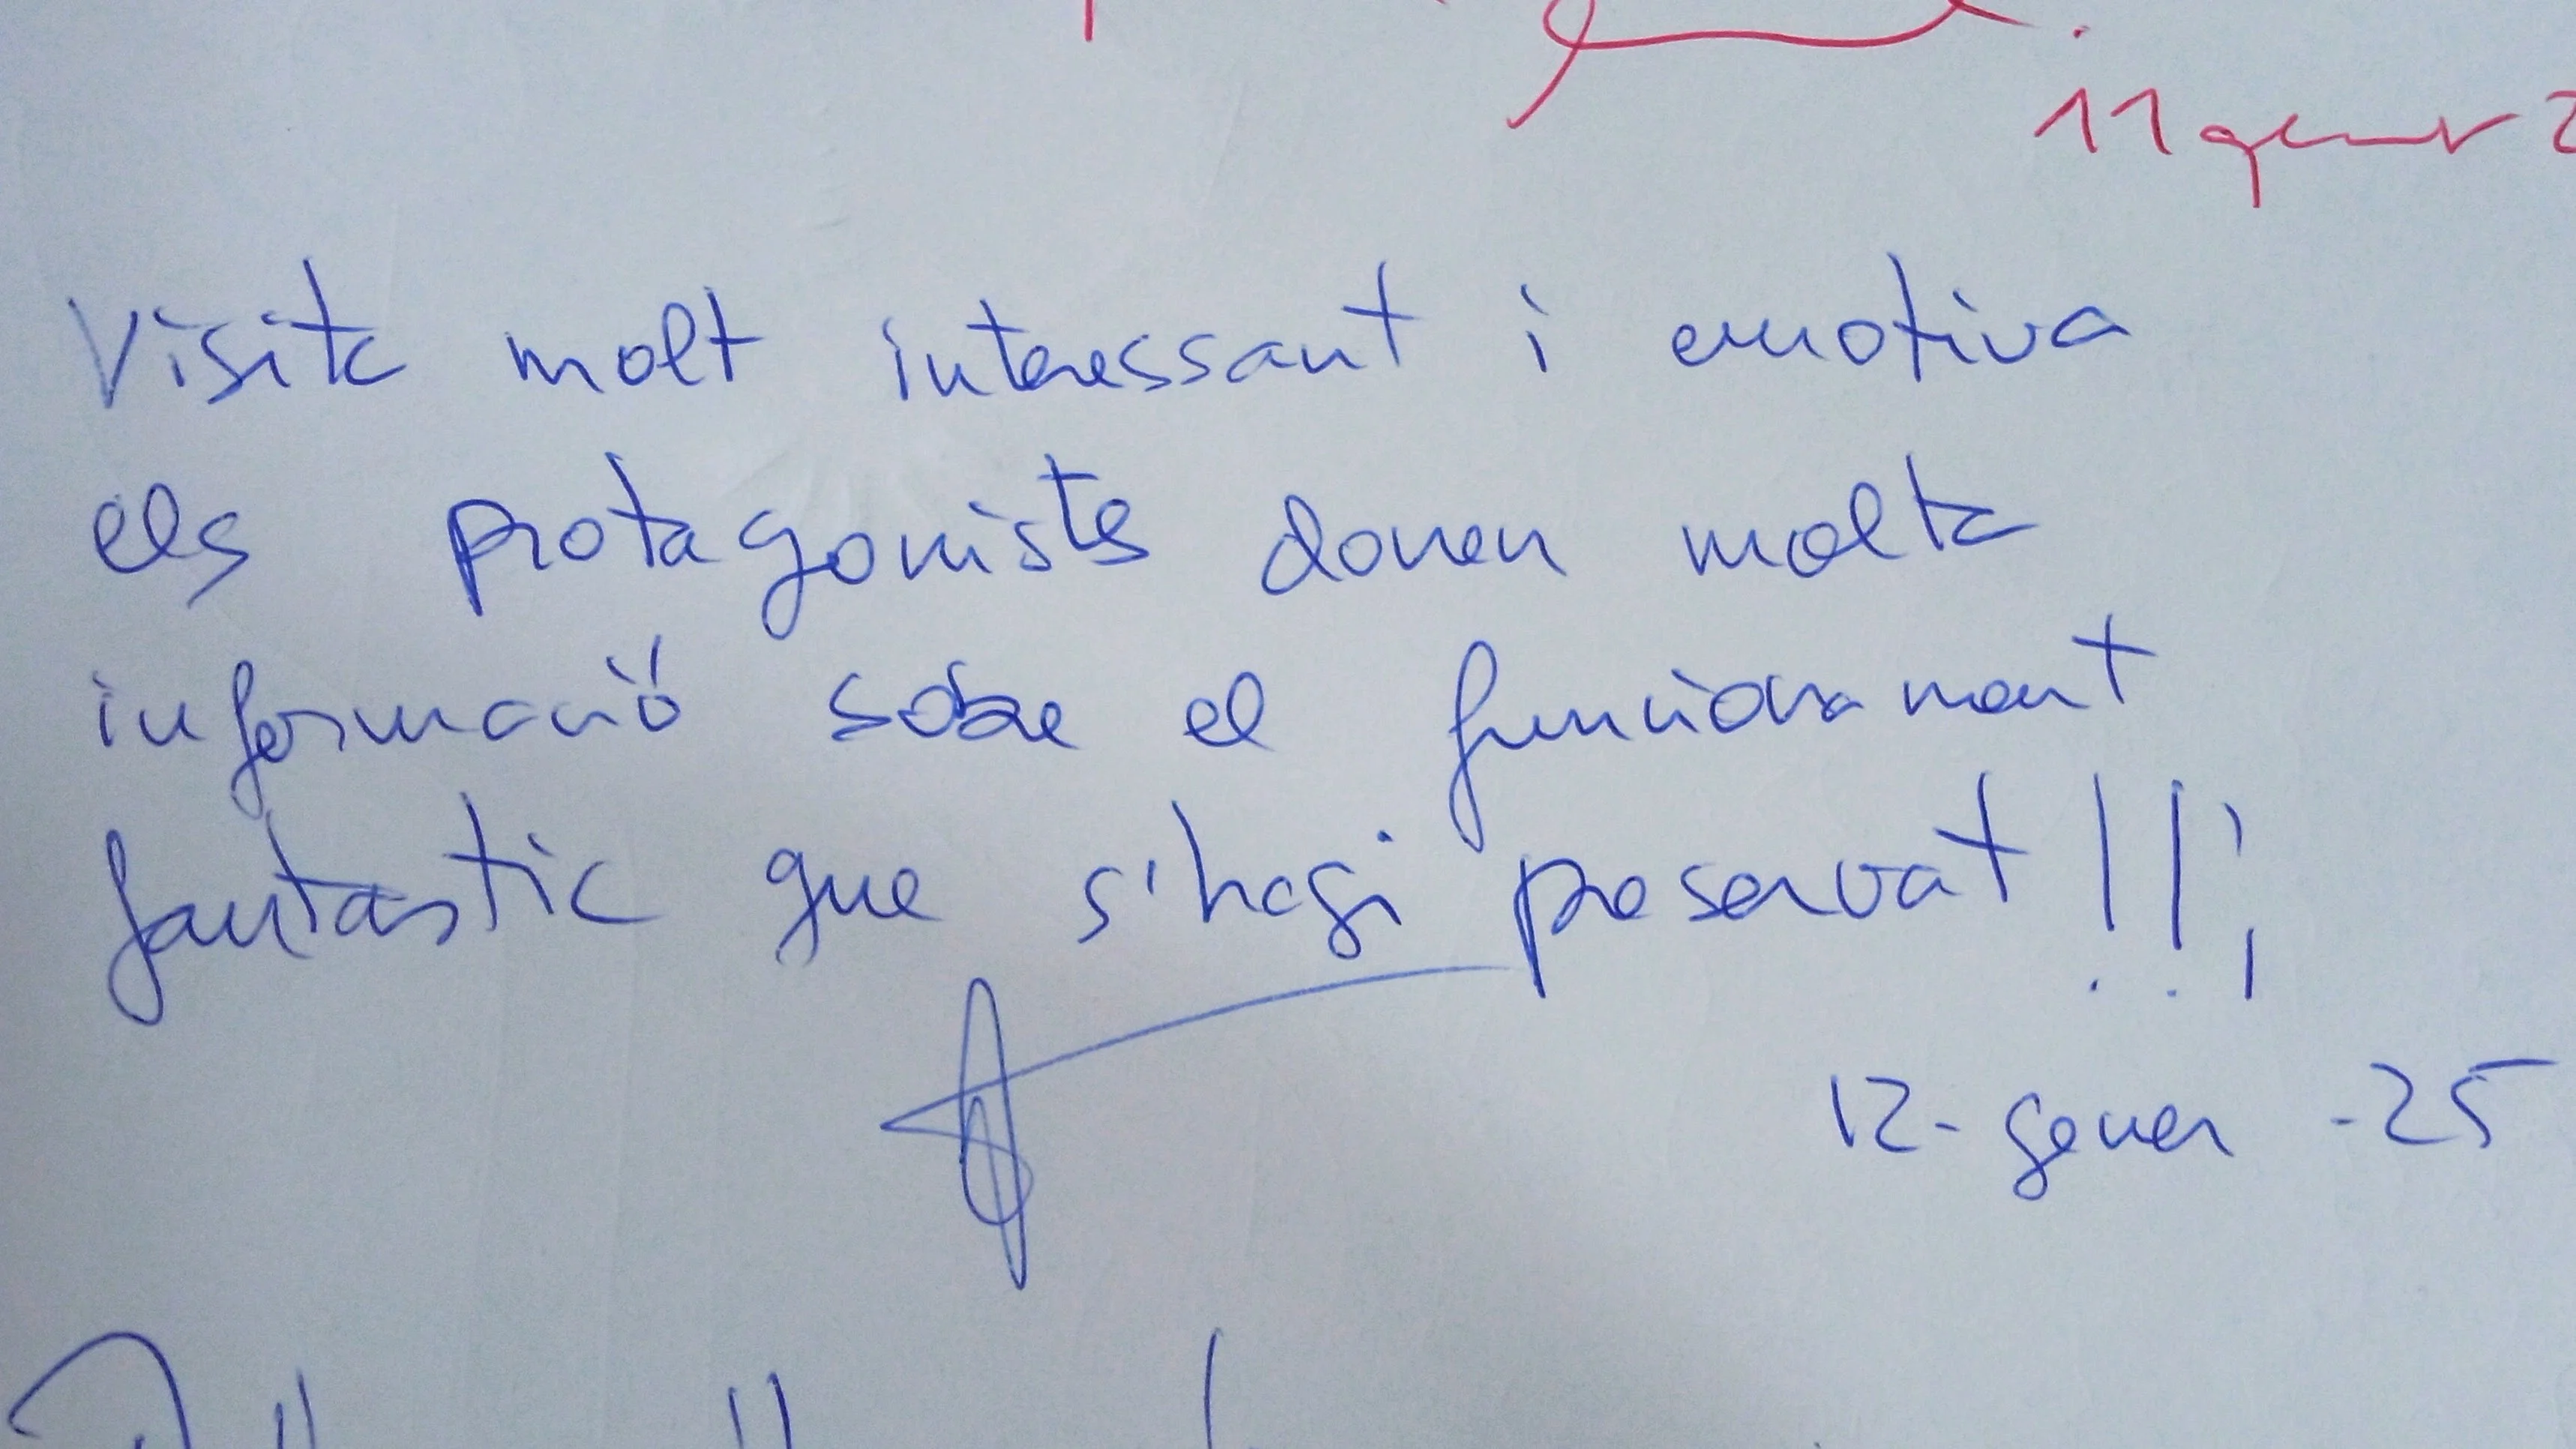 11 gener 2
Visita molt interessant i emotiva
els protagonistes donen molta
informació sobre el funcionament
fantastic que s'hagi preservat!!!
12-gener-25